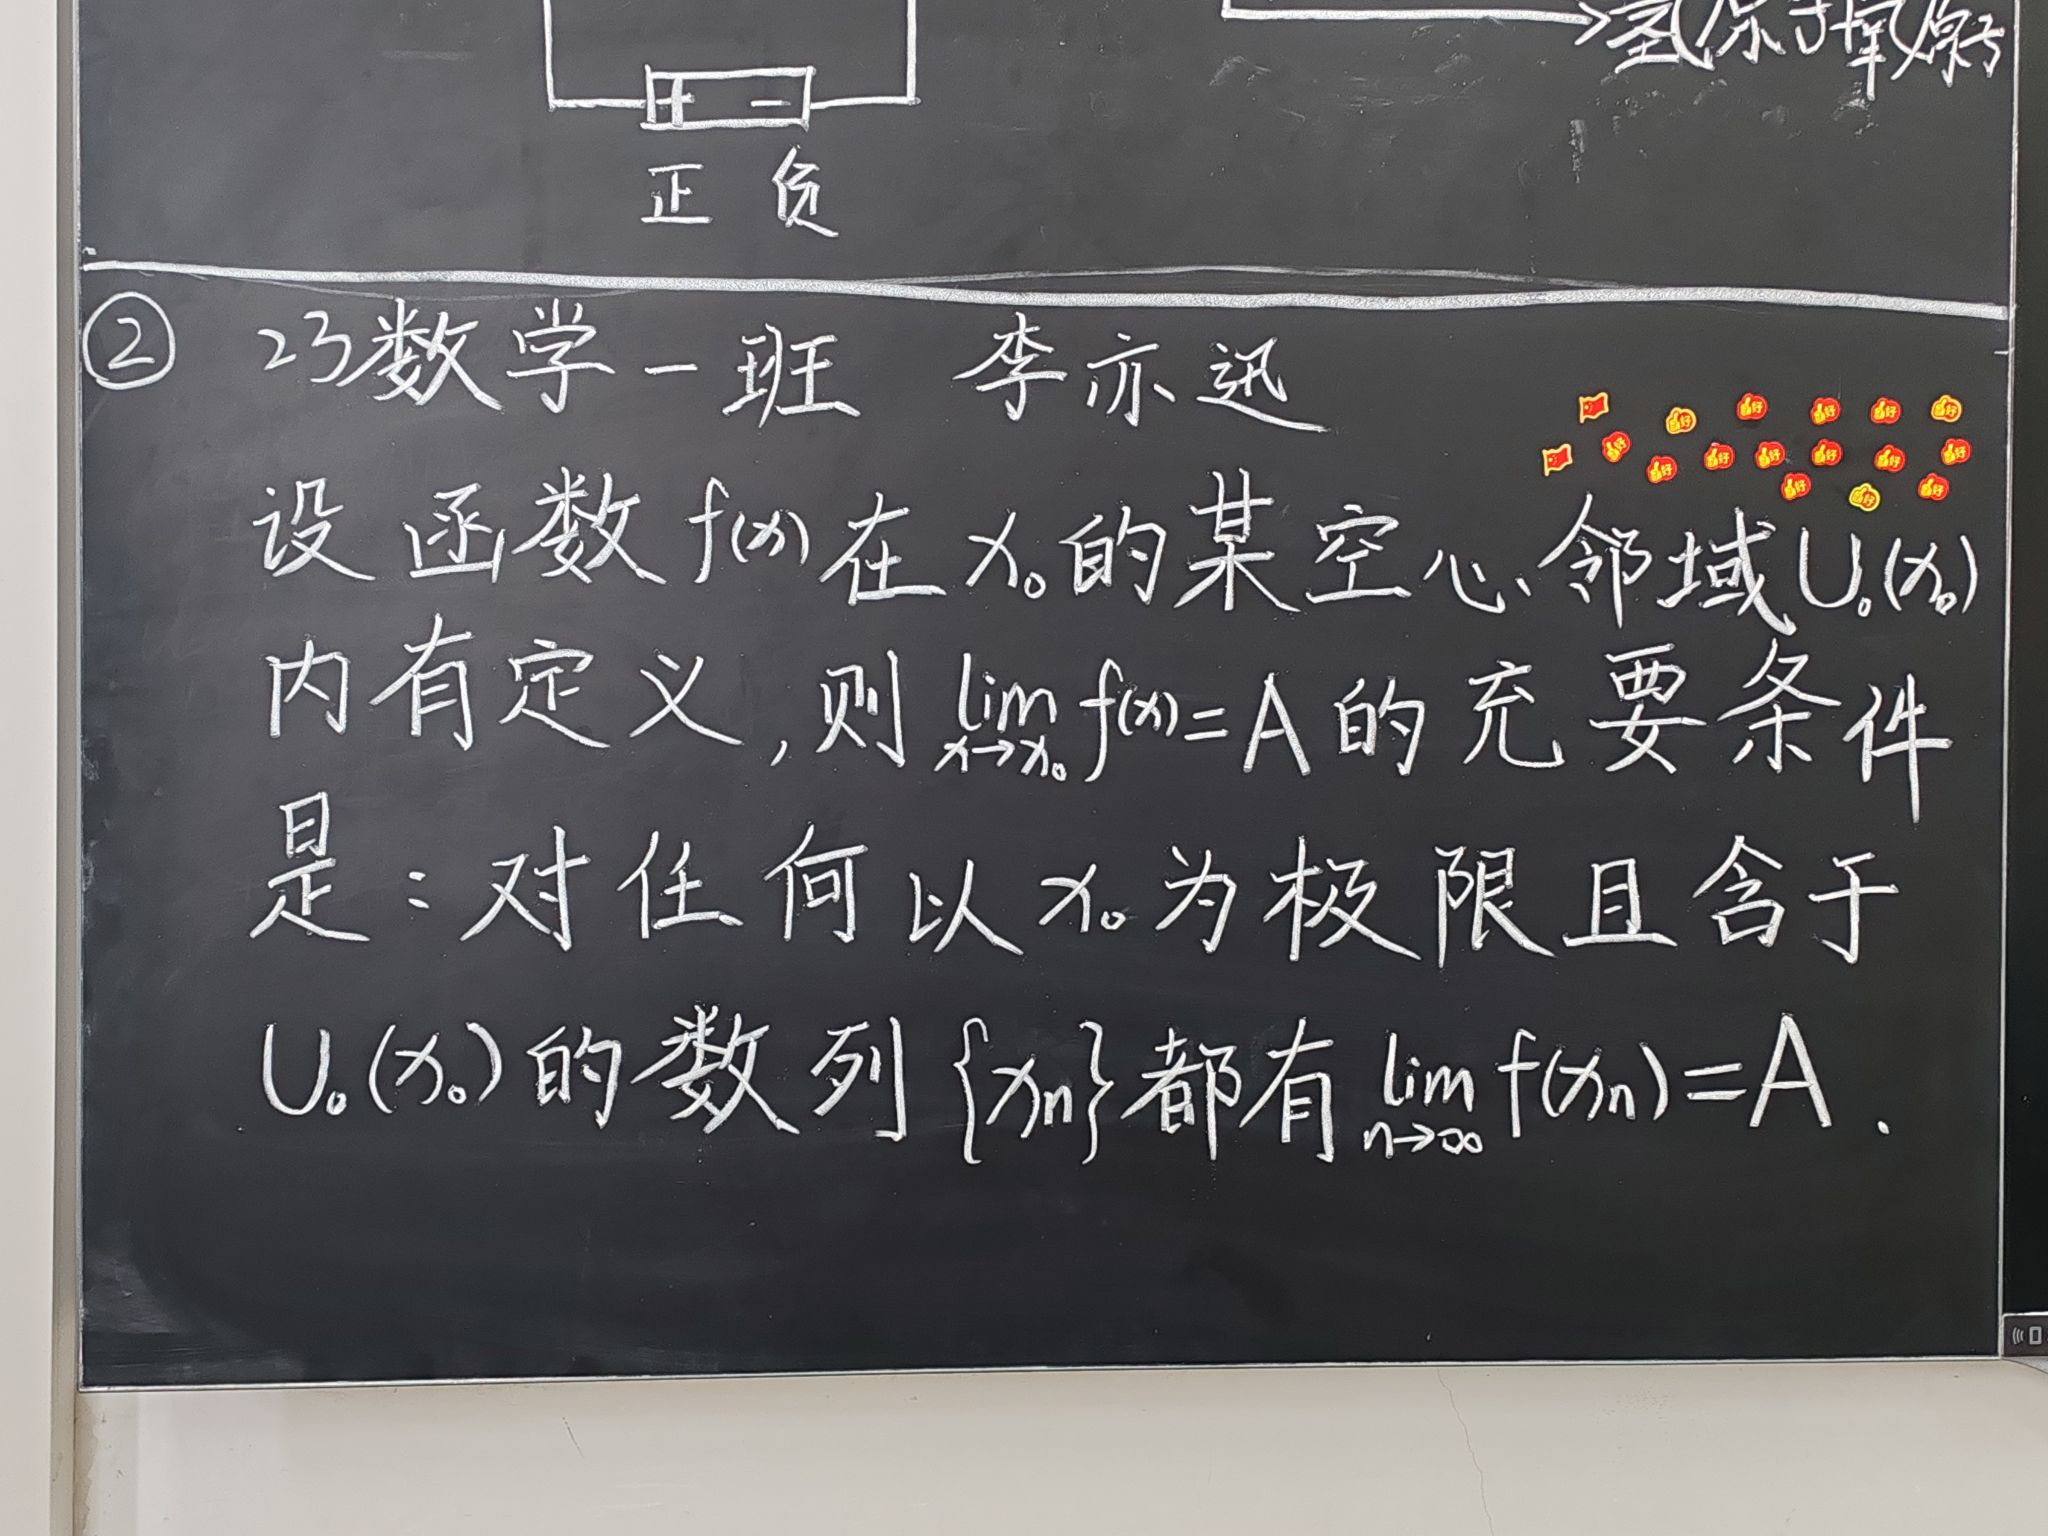 氢原子氧原子
+ −
正 负
② 23数学一班 李亦迅
设函数f(x)在x₀的某空心邻域U₀(x₀)
内有定义,则lim f(x)=A的充要条件
x→x₀
是:对任何以x₀为极限且含于
U₀(x₀)的数列{xn}都有lim f(xn)=A.
n→∞